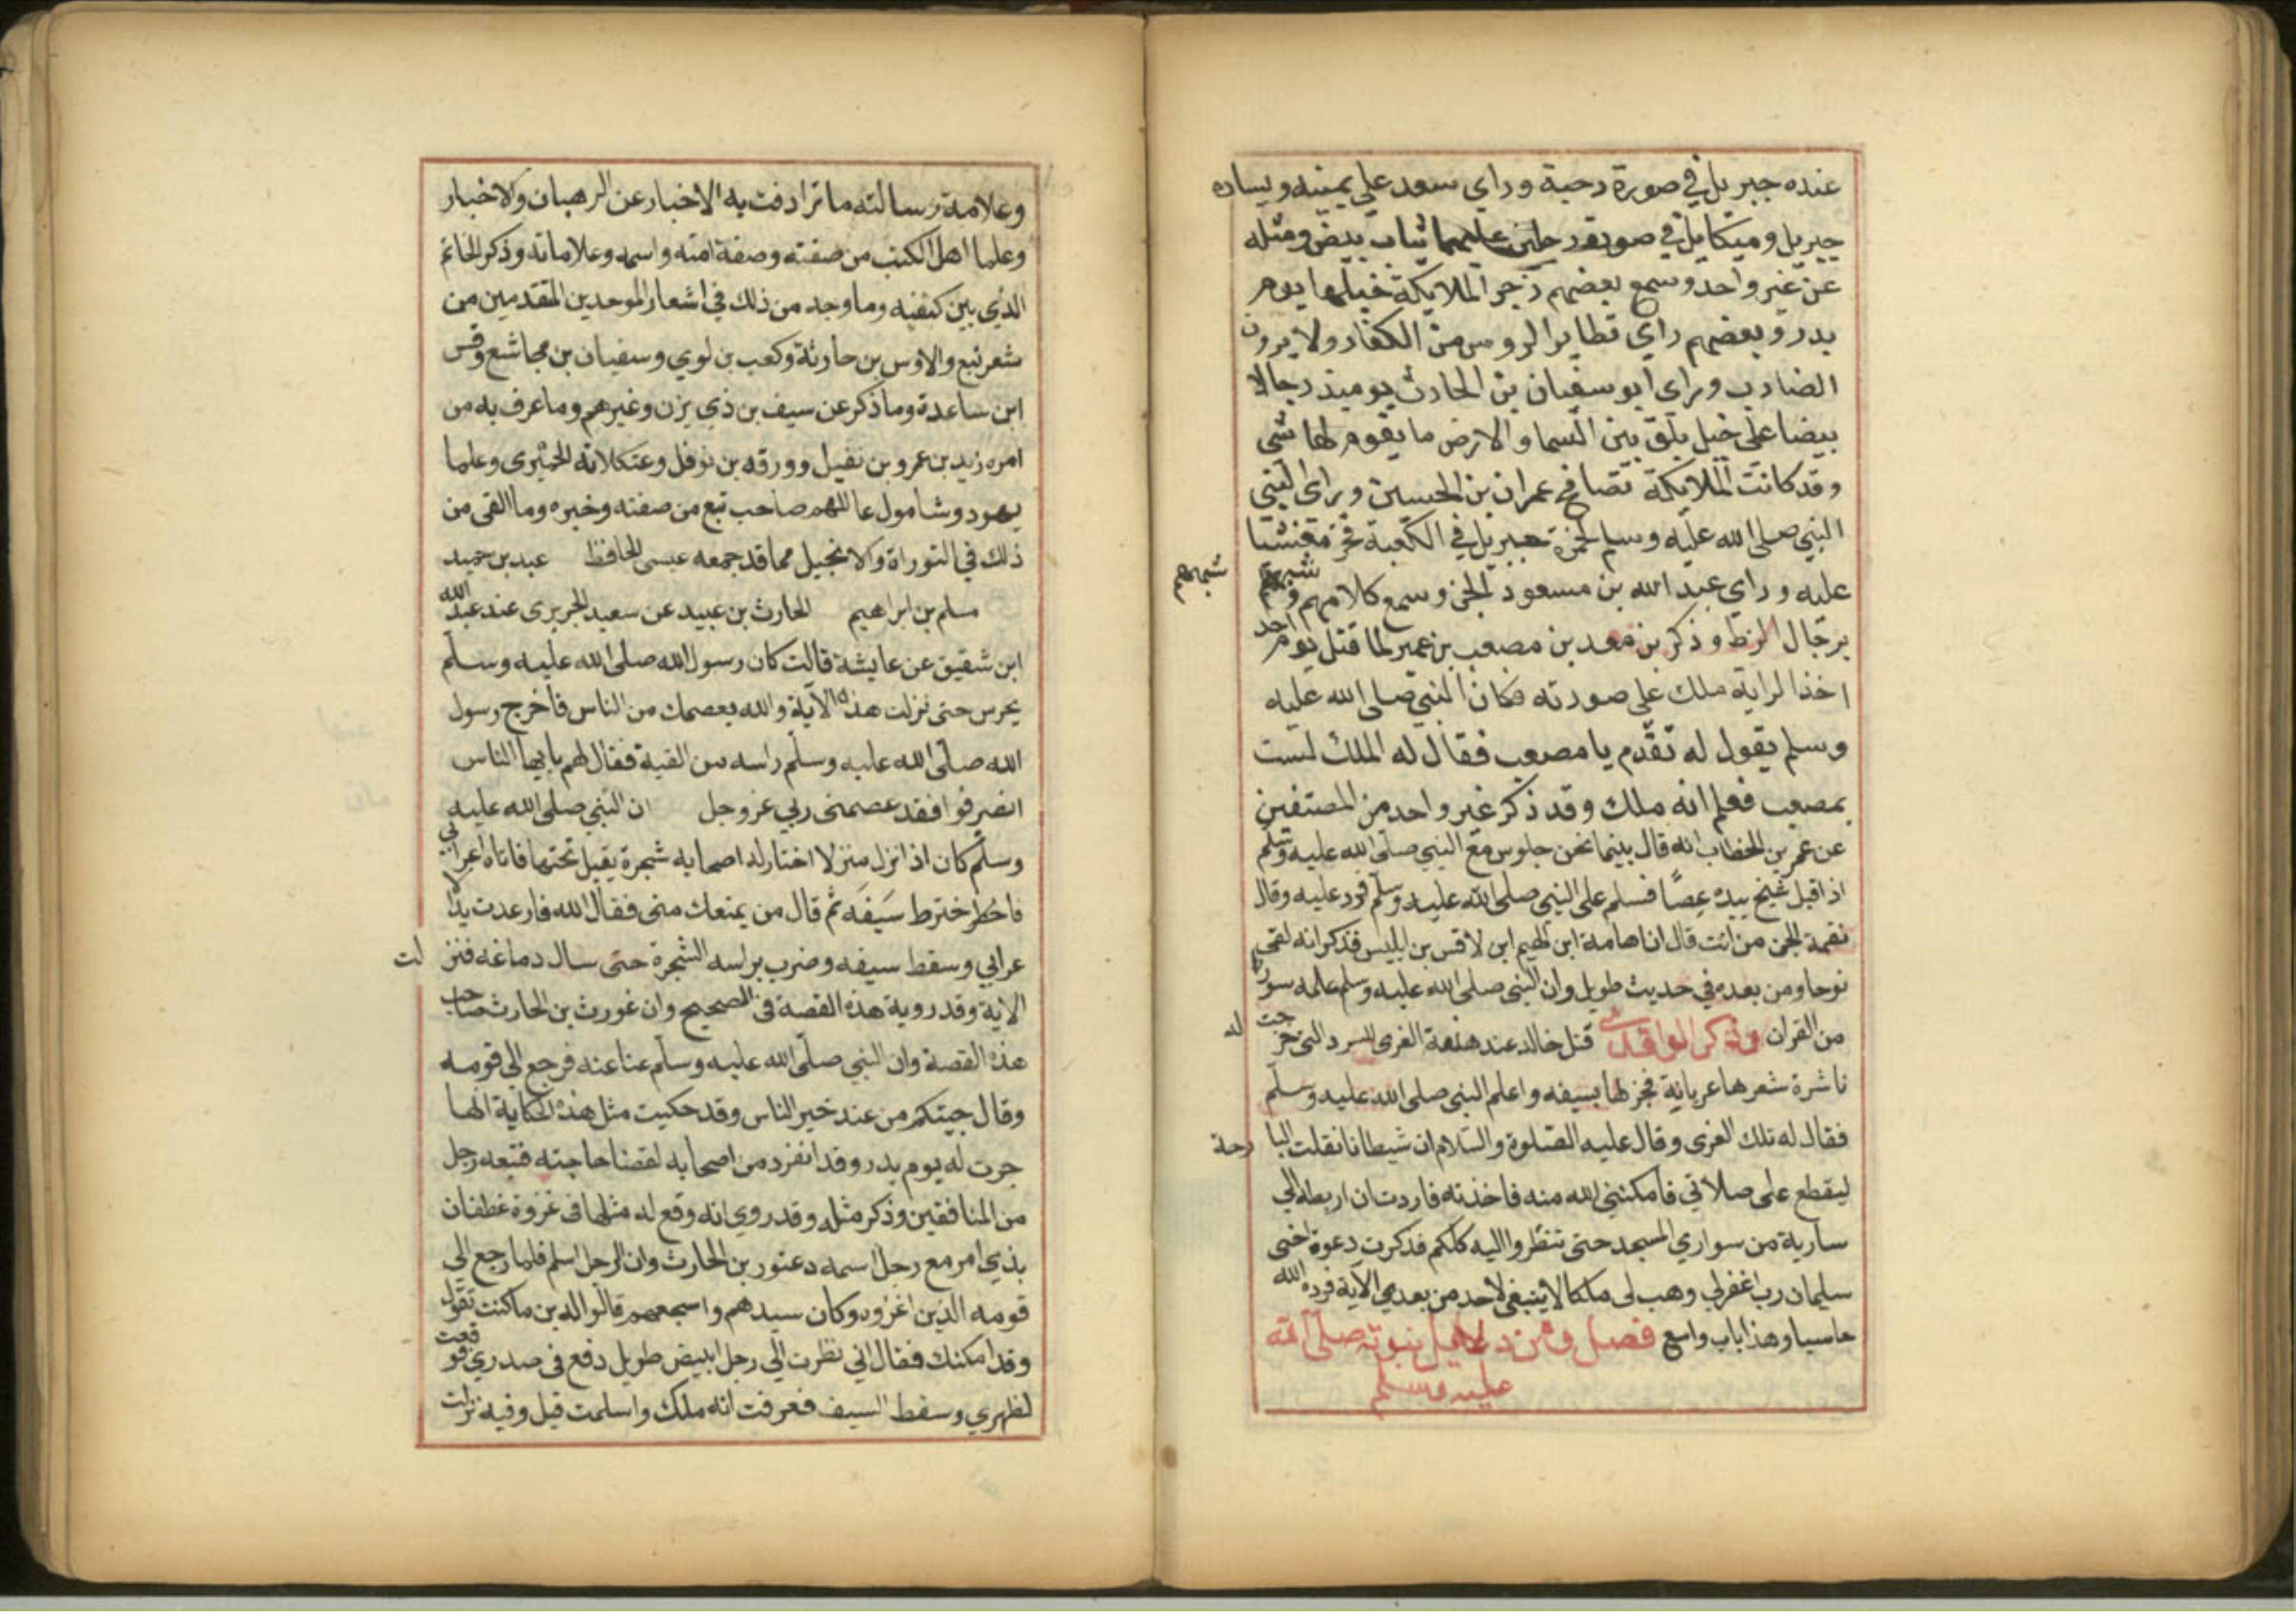 عنده جبريل في صورة دحية وراى سعد على يمينه ويساره
جبريل وميكايل في صورة رجلين عليهما ثياب بيض ومثله
عن غير واحد وسمع بعضهم زجر الملايكة خيلها يوم
بدر وبعضهم راى تطاير الروس من الكفار ولا يرون
الضارب وراى ابو سفيان بن الحارث يوميذ رجالا
بيضا على خيل بلق بين السما والارض ما يقوم لها شي
وقد كانت الملايكة تصافح عمران بن الحسين وراى النبي
النبي صلى الله عليه وسلم لحمزة جبريل في الكعبة فخر مغشيا
عليه وراي عبد الله بن مسعود الجن وسمع كلامهم وشبههم
شبههم
برجال الزط وذكر بن معد بن مصعب بن عمير لما قتل يوم احد
اخذ الراية ملك على صورته فكان النبي صلى الله عليه
وسلم يقول له تقدم يا مصعب فقال له الملك لست
بمصعب فعلم انه ملك وقد ذكر غير واحد من المصنفين
عن عمر بن الخطاب انه قال بينما نحن جلوس مع النبي صلى الله عليه وسلم
اذ اقبل شيخ بيده عصا فسلم على النبي صلى الله عليه وسلم فرد عليه وقال
نغمة الجن من انت قال انا هامة ابن الهيم ابن لاقس بن ابليس فذكر انه لقى
نوحا ومن بعده في حديث طويل وان النبي صلى الله عليه وسلم علمه سورا
من القران وذكر الواقدي قتل خالد عند هدمه العزى للسودا التي خرجت له
ناشرة شعرها عريانة فجزلها بسيفه واعلم النبي صلى الله عليه وسلم
فقال له تلك العزى وقال عليه الصلوة والسلام ان شيطانا تفلت البارحة
ليقطع على صلاتي فامكنني الله منه فاخذته فاردت ان اربطه الي
سارية من سواري المسجد حتى تنظروا اليه كلكم فذكرت دعوة اخى
سليمان رب اغفرلي وهب لى ملكا لا ينبغى لاحد من بعدى الآية فرده الله
خاسيا وهذا باب واسع فصل ومن دلايل نبوته صلى الله
عليه وسلم
وعلامة رسالته ما ترادفت به الاخبار عن الرهبان والاخبار
وعلما اهل الكتب من صفته وصفة امته واسمه وعلاماته وذكر الخاتم
الذي بين كتفيه وما وجد من ذلك في اشعار الموحدين المتقدمين من
شعر تبع والاوس بن حارثة وكعب بن لوي وسفيان بن مجاشع وقس
ابن ساعدة وما ذكر عن سيف بن ذي يزن وغيرهم وما عرف به من
امره زيد بن عمرو بن نفيل وورقه بن نوفل وعتكلانه الحميري وعلما
يهود وشامول عالمهم صاحب تبع من صفته وخبره وما القى من
ذلك في التوراة والانجيل مما قد جمعه عيسى الحافظ عبد بن حميد
مسلم بن ابراهيم الحارث بن عبيد عن سعيد الجريرى عند عبد الله
ابن شقيق عن عايشة قالت كان رسول الله صلى الله عليه وسلم
يحرس حتى نزلت هذه الآية والله يعصمك من الناس فاخرج رسول
الله صلى الله عليه وسلم راسه من القبة فقال لهم يا ايها الناس
انصرفوا فقد عصمنى ربي عز وجل ان النبي صلى الله عليه
وسلم كان اذا نزل منزلا اختار له اصحابه شجرة يقيل تحتها فاتاه اعرابي
فاخترط سيفه ثم قال من يمنعك منى فقال الله فارعدت يد الا
عرابي وسقط سيفه وضرب براسه الشجرة حتى سال دماغه فنزلت
الاية وقد روية هذه القصة فى الصحيح وان غورث بن الحارث صاحب
هذه القصة وان النبي صلى الله عليه وسلم عفا عنه فرجع الى قومه
وقال جيتكم من عند خير الناس وقد حكيت مثل هذه الحكاية انها
جرت له يوم بدر وقد انفرد من اصحابه لقضا حاجته فتبعه رجل
من المنافقين وذكر مثله وقد روي انه وقع له مثلها فى غزوة غطفان
بذي امر مع رجل اسمه دعثور بن الحارث وان الرجل اسلم فلما رجع الى
قومه الذين اغروه وكان سيدهم واشجعهم قالوا له اين ما كنت تقول
وقد امكنك فقال اني نظرت الى رجل ابيض طويل دفع فى صدري فوقعت
لظهري وسقط السيف فعرفت انه ملك واسلمت قيل وفيه نزلت